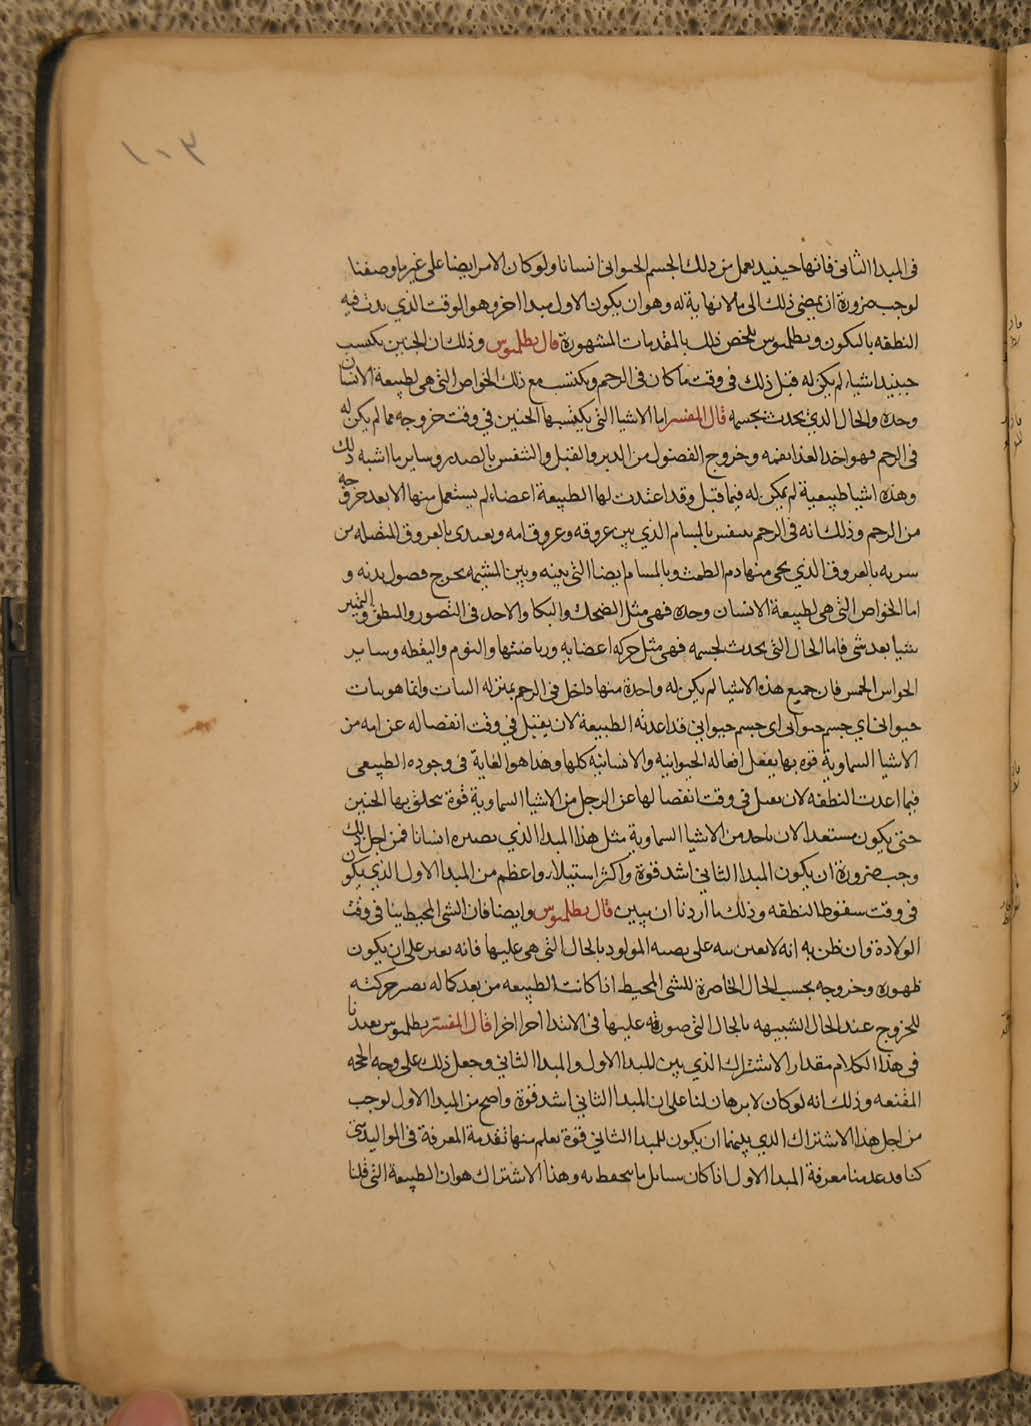 ١٠٣
في المبدا الثاني فانها حينيد يعمل من ذلك الجسم الحيواني انسانا ولو كان الامر ايضا على غير ما وصفنا
لوجب ضرورة ان يمضي ذلك الى ما لانهاية له وهو ان يكون الاول مبدا اخر وهو الوقت الذي بدت فيه
النطفه بالتكون وبطلميوس يلخص ذلك بالمقدمات المشهورة قال بطلميوس وذلك ان الجنين يكتسب
حينيد اشياء لم يكن له قبل ذلك في وقت ما كان في الرحم ويكتسب مع ذلك الخواص التي هي لطبيعة الانسان
وحده والحال الذي يحدث بجسمه قال المفسر اما الاشيا التي يكتسبها الجنين في وقت خروجه مما لم يكن له
في الرحم فهو اخذ الغذا بفمه وخروج الفضول من الدبر والقبل والتنفس بالصدر وساير ما اشبه ذلك
وهذه اشيا طبيعية لم يكن له فيما قبل وقد اعتدت لها الطبيعة اعضاء لم يستعمل منها الا بعد خروجه
من الرحم وذلك انه في الرحم يتنفس بالمسام الذي بين عروقه وعروق امه ويغتدى بالعروق المتصله من
سرته بالعروق الذي يجى منها دم الطمث وبالمسام ايضا التي بينه وبين المشيمه يخرج فضول بدنه و
اما الخواص التي هي لطبيعة الانسان وحده فهي مثل الضحك والبكا والاخذ في التصور والنطق والتميز
شيا بعد شي فاما الحال التي يحدث لجسمه فهي مثل حركه اعضايه ورياضتها والنوم واليقظه وساير
الحواس الخمس فان جميع هذه الاشيا لم يكن له واحدة منها داخل في الرحم بمنزله النبات وانما هو نبات
حيواني اي جسم حيواني اي جسم حيواني قد اعدته الطبيعة لان يقبل في وقت انفصاله عن امه من
الاشيا السماوية قوه بها يفعل افعاله الحيوانيه والانسانيه كلها وهذا هو الغاية في وجوده الطبيعي
فيما اعدت النطفه لان يقبل في وقت انفصالها عن الرجل من الاشيا السماوية قوة يخلق بها الجنين
حتى يكون مستعدا لان ياخذ من الاشيا السماوية مثل هذا المبدا الذي يصيره انسانا فمن اجل ذلك
وجب ضرورة ان يكون المبدا الثاني اشد قوة واكثر استيلاء واعظم من المبدا الاول الذي يكون
في وقت سقوط النطفه وذلك ما اردنا ان نبين قال بطلميوس وايضا فان الشي المحيط بنا في وقت
الولادة وان ظن به انه لا يعين على المولود بالحال التي هي عليها فانه يعين على ان يكون
ظهوره وخروجه بحسب الحال الخاصرة للشي المحيط اذا كانت الطبيعه من بعد كماله حركته
للخروج عند الحال الشبيهه بالحال التي صورته عليها في الابتدا اخرا اخرا قال المفسر بطلميوس
في هذا الكلام مقدار الاشتراك الذي بين للمبدا الاول والمبدا الثاني وجعل ذلك على وجه الحجه
المقنعه وذلك انه لو كان لا برهان لنا على ان المبدا الثاني اشد قوة واصح من المبدا الاول لوجب
من اجل هذا الاشتراك الذي بينهما ان يكون للمبدا الثاني قوة يعلم منها تقدمة المعرفة في المواليد متى
كنا قد عدمنا معرفة المبدا الاول اذا كان وهذا الاشتراك هو ان الطبيعة التي قلنا